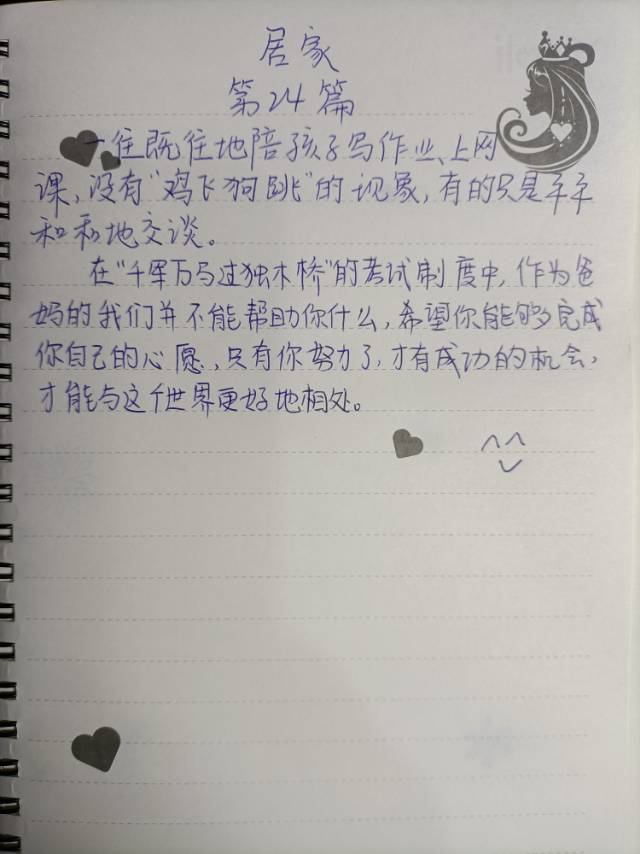 居家
第24篇
一往既往地陪孩子写作业、上网
课，没有“鸡飞狗跳”的现象，有的只是平平
和和地交谈。
在“千军万马过独木桥”的考试制度中，作为爸
妈的我们并不能帮助你什么，希望你能够完成
你自己的心愿，只有你努力了，才有成功的机会，
才能与这个世界更好地相处。